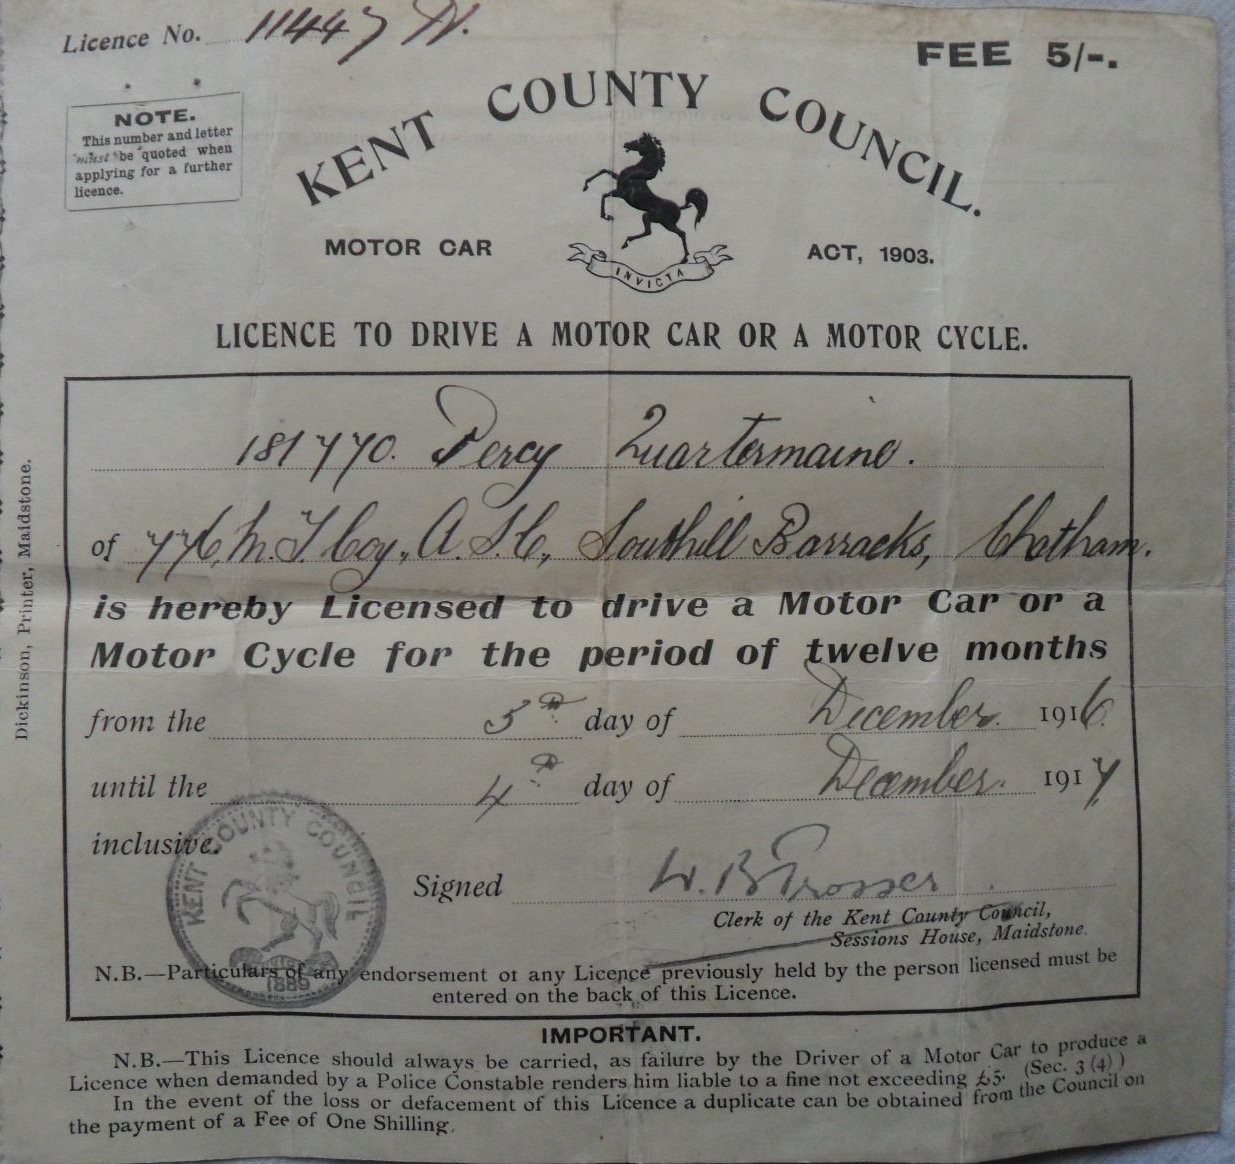 Licence No. 11447 W.
FEE 5/-.
NOTE.
This number and letter
must be quoted when
applying for a further
licence.
KENT COUNTY COUNCIL.
MOTOR CAR ACT, 1903.
INVICTA
LICENCE TO DRIVE A MOTOR CAR OR A MOTOR CYCLE.
181770. Percy Quartermaine.
of 776, M. T. Coy, A. S. C, Southill Barracks, Chatham.
is hereby Licensed to drive a Motor Car or a
Motor Cycle for the period of twelve months
from the 5th day of December. 1916.
until the 4th day of December. 1917.
inclusive.
KENT COUNTY COUNCIL
INVICTA
1889
Signed W. B Prosser
Clerk of the Kent County Council,
Sessions House, Maidstone.
N.B.—Particulars of any endorsement of any Licence previously held by the person licensed must be
entered on the back of this Licence.
IMPORTANT.
N.B.—This Licence should always be carried, as failure by the Driver of a Motor Car to produce a
Licence when demanded by a Police Constable renders him liable to a fine not exceeding £5. (Sec. 3 (4) )
In the event of the loss or defacement of this Licence a duplicate can be obtained from the Council on
the payment of a Fee of One Shilling.
Dickinson, Printer, Maidstone.